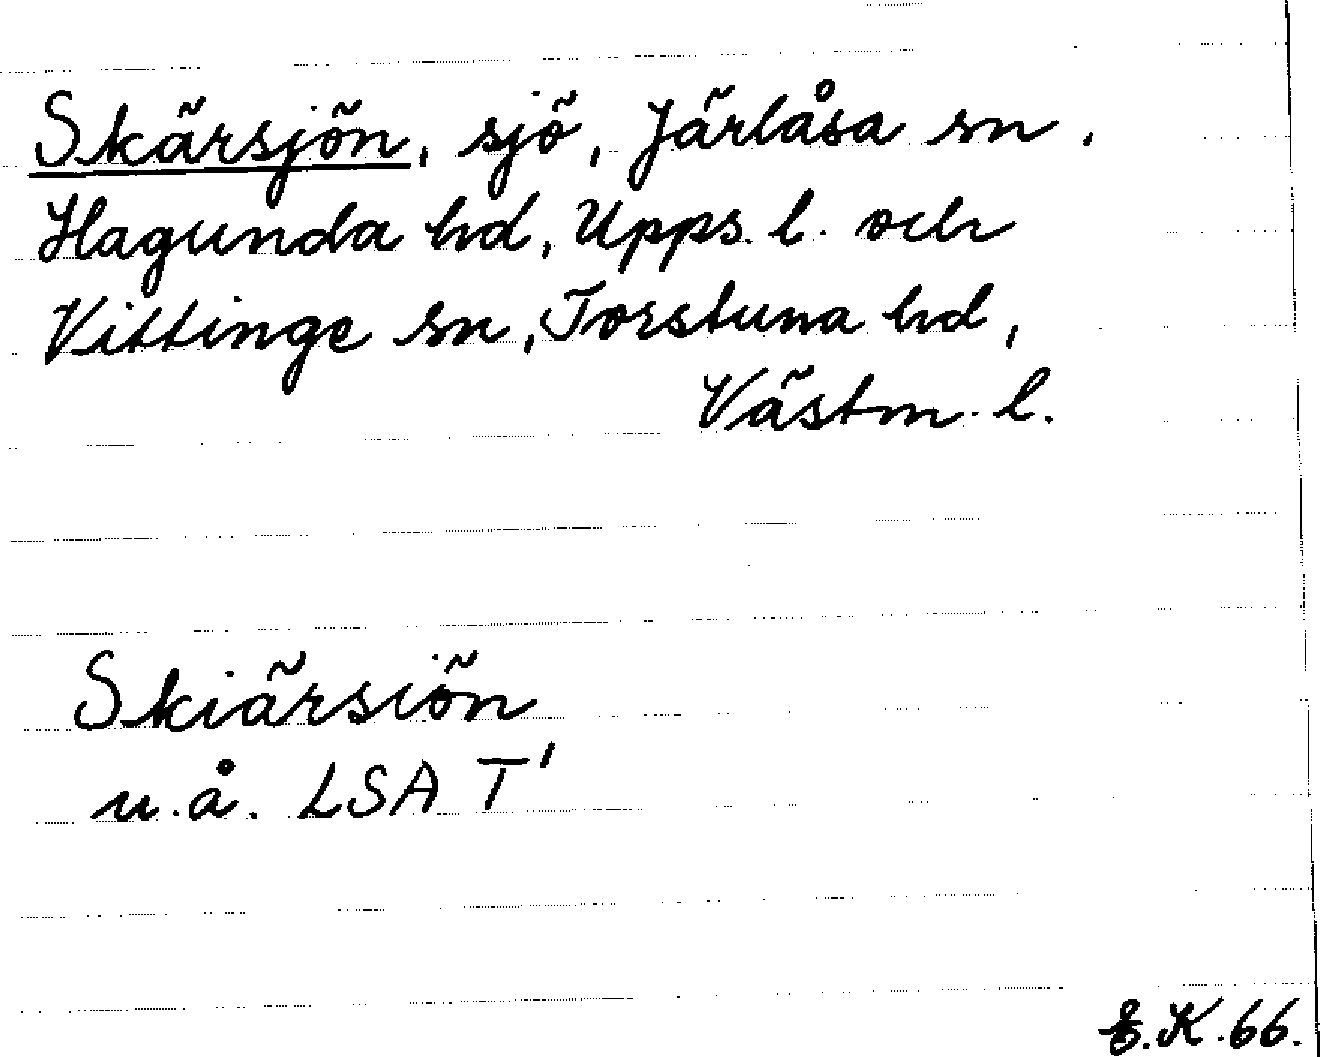 Skärsjön, sjö, Järlåsa sn,
Hagunda hd, Upps. l. och
Vittinge sn, Torstuna hd,
Västm. l.
Skiärsiön
u.å. LSA T'
E.K.66.